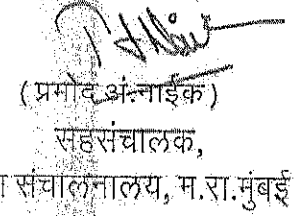 (प्रमोद अं.नाईक)
सहसंचालक,
संचालनालय, म.रा.मुंबई